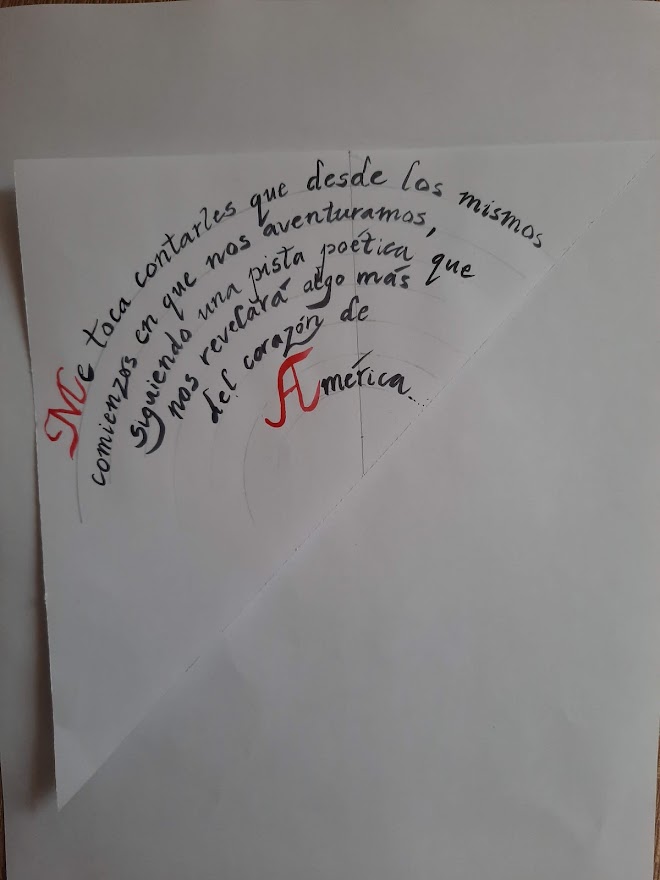 Me toca contarles que desde los mismos
comienzos en que nos aventuramos,
siguiendo una pista poética que
nos revelará algo más
del corazón de
América...